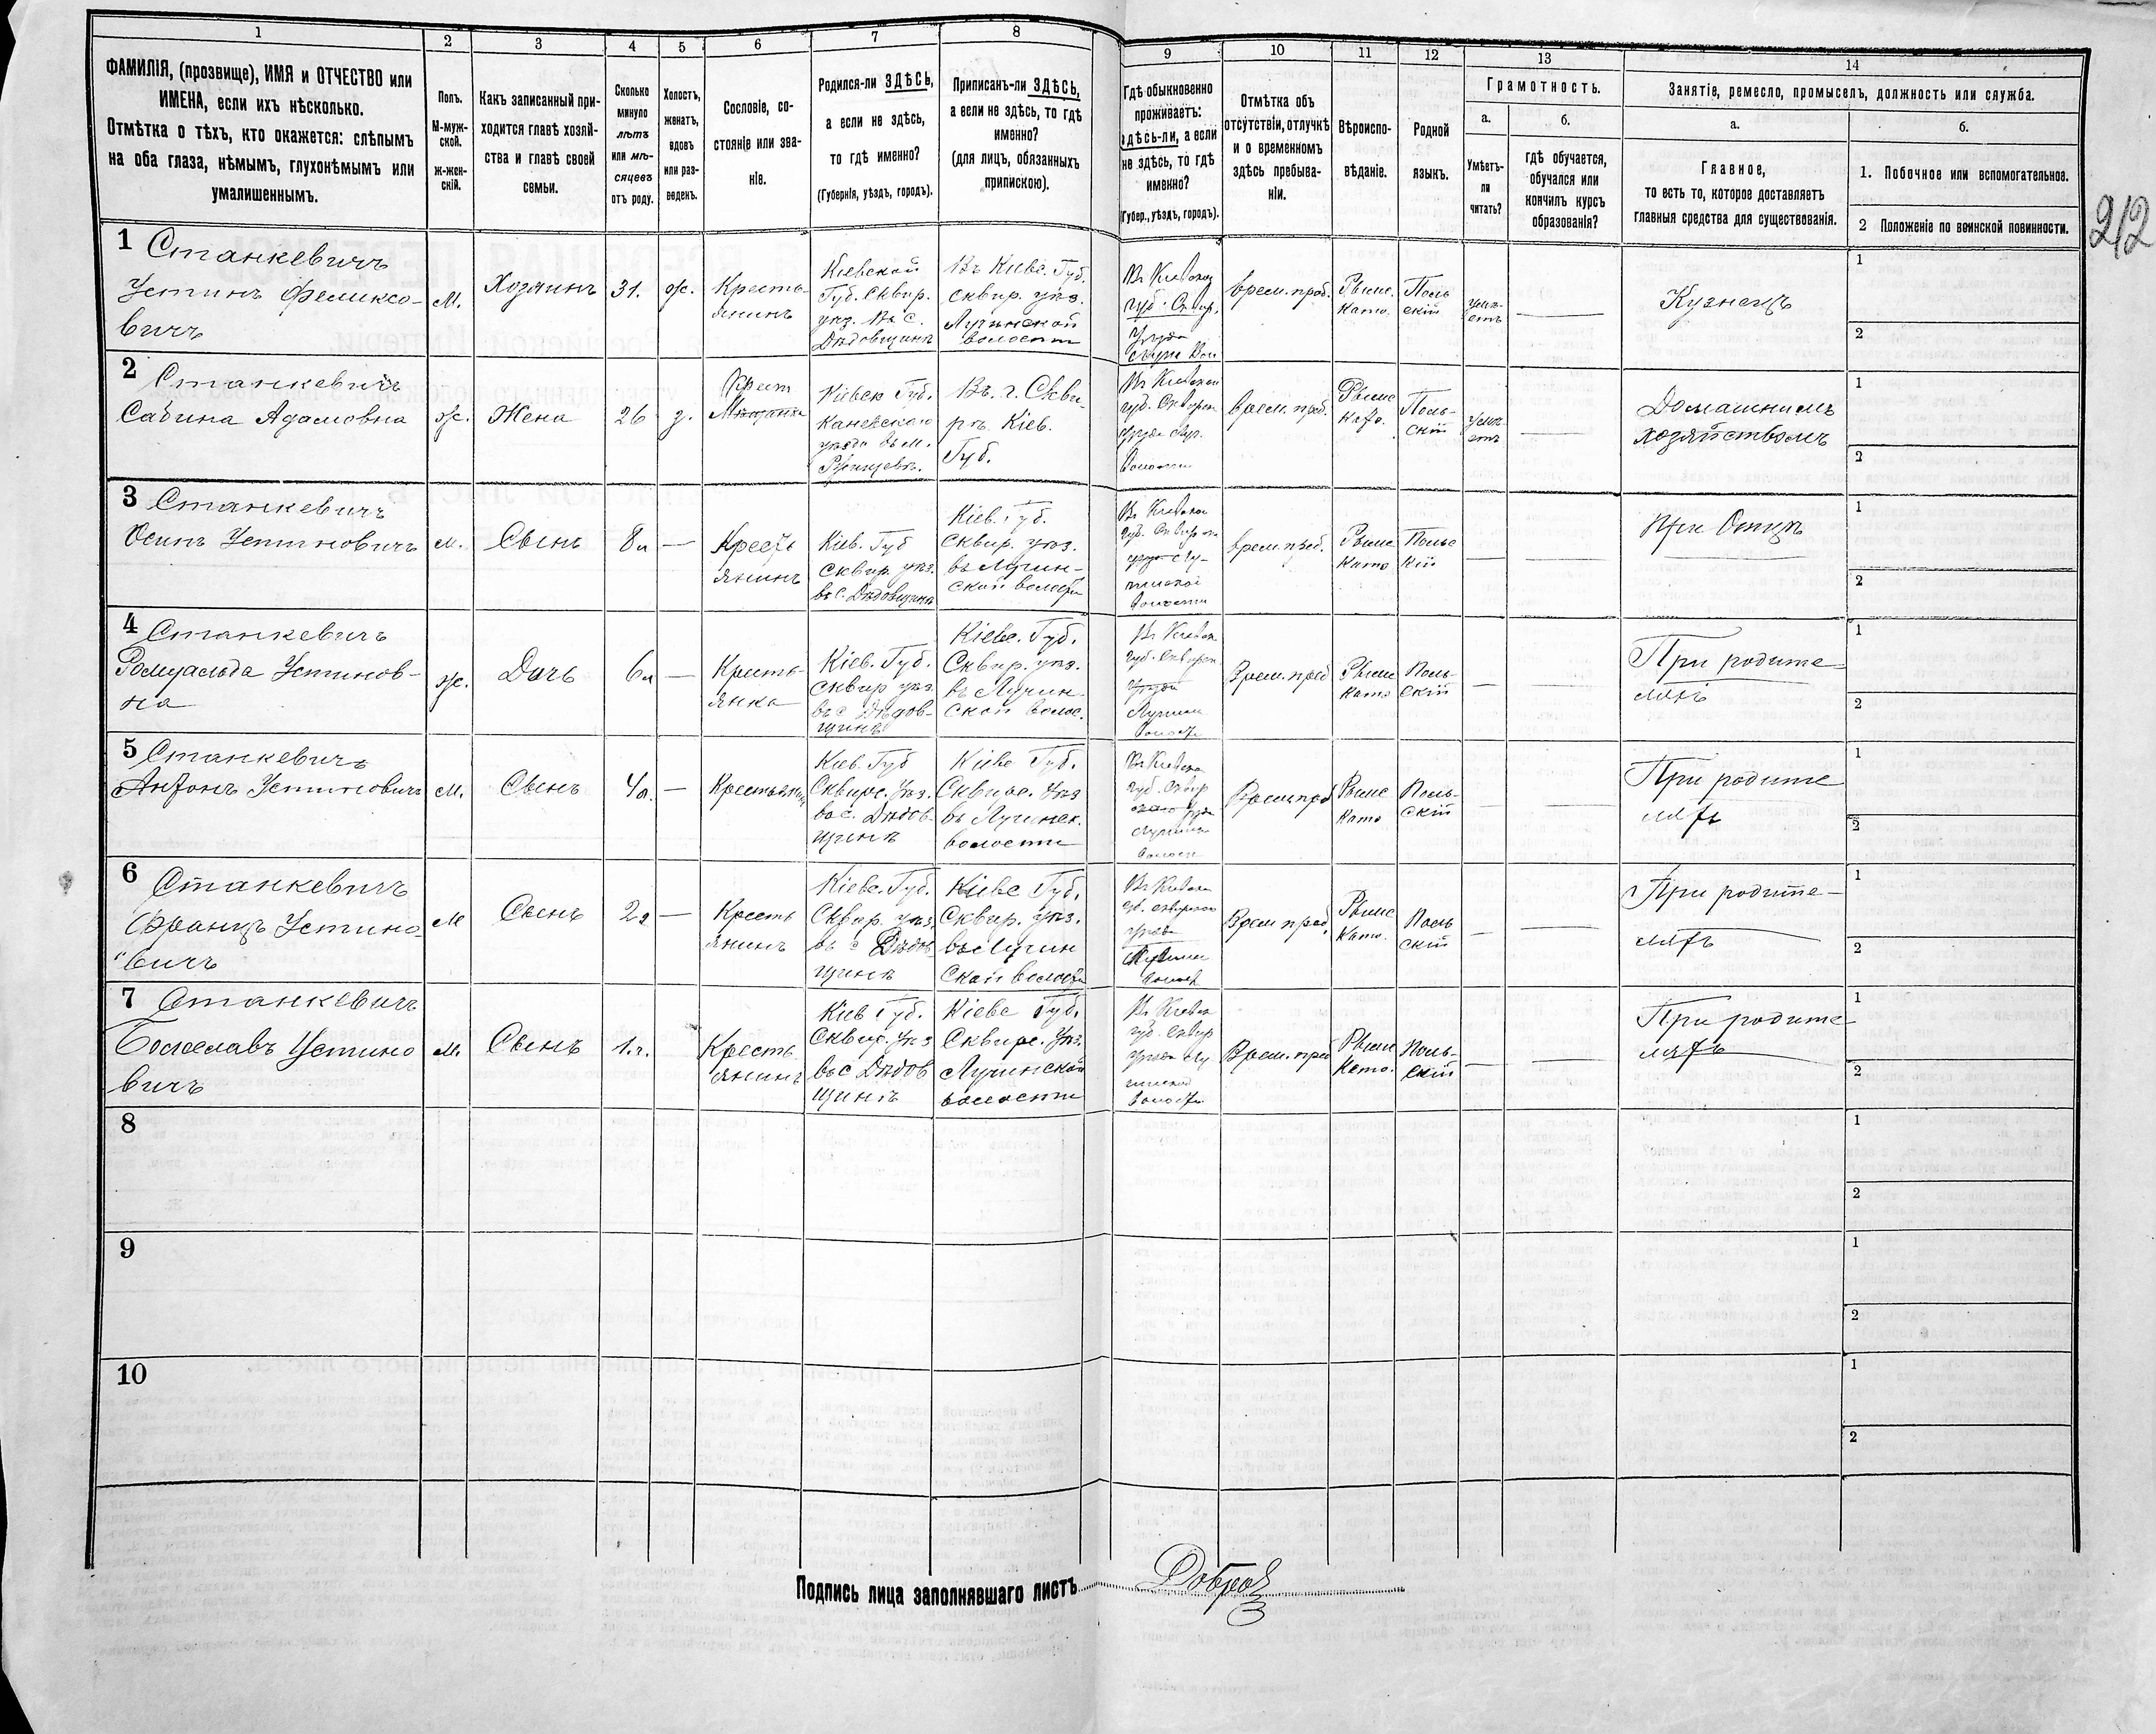 1
2
3
4
5
6
7
8
9
10
11
12
13
14
ФАМИЛІЯ, (прозвище), ИМЯ и ОТЧЕСТВО или
ИМЕНА, если ихъ нѣсколько.
Отмѣтка о тѣхъ, кто окажется: слѣпымъ
на оба глаза, нѣмымъ, глухонѣмымъ или
умалишеннымъ.
Полъ.
М-муж-
ской.
Ж-жен-
скій.
Какъ записанный при-
ходится главѣ хозяй-
ства и главѣ своей
семьи.
Сколько
минуло
лѣтъ
или мѣ-
сяцевъ
отъ роду.
Холостъ,
женатъ,
вдовъ
или раз-
веденъ.
Сословіе, со-
стояніе или зва-
ніе.
Родился-ли ЗДѢСЬ,
а если не здѣсь,
то гдѣ именно?
(Губернія, уѣздъ, городъ).
Приписанъ-ли ЗДѢСЬ,
а если не здѣсь, то гдѣ
именно?
(для лицъ, обязанныхъ
припискою).
Гдѣ обыкновенно
проживаетъ:
здѣсь-ли, а если
не здѣсь, то гдѣ
именно?
(Губер., уѣздъ, городъ).
Отмѣтка объ
отсутствіи, отлучкѣ
и о временномъ
здѣсь пребыва-
ніи.
Вѣроиспо-
вѣданіе.
Родной
языкъ.
Грамотность.
а.
Умѣетъ-
ли
читать?
б.
гдѣ обучается,
обучался или
кончилъ курсъ
образованія?
Занятіе, ремесло, промыселъ, должность или служба.
а.
Главное,
то есть то, которое доставляетъ
главныя средства для существованія.
б.
1. Побочное или вспомогательное.
2 Положеніе по воинской повинности.
212
1 Станкевичъ
Устинъ Феликсо-
вичъ
м.
Хозяинъ
31.
ж.
Кресть-
янинъ
Кіевской
Губ. Сквир.
уѣз. Въ с.
Дѣдовщинѣ
Въ Кіевс. Губ.
сквир. уѣз.
Лучинской
волости
врем. преб.
Римс.
като.
Поль
скій
умѣ-
етъ
Кузнецъ
1
2
2 Станкевичъ
Сабина Адамовна
ж.
Жена
26
з.
Крест
Кіевск Губ.
Каневскаго
Въ. г. Скви-
рѣ. Кіев.
Губ.
врем. преб.
Римс
Поль-
скій
умѣ-
етъ
Домашнимъ
хозяйствомъ
1
2
3 Станкевичъ
Осипъ Устиновичъ
м.
Сынъ
8л
—
Кресть
янинъ
Кіев. Губ
Сквир. уѣз.
въ с. Дѣдовщинѣ
Кіев. Губ.
Сквир. уѣз.
въ Лучин-
ской волости
врем. преб.
Римс
като
Польс
кій
При Отцѣ
1
2
4 Станкевичъ
Ромуальда Устинов-
на
ж.
Дочь
6л
—
Кресть-
янка
Кіев. Губ.
Сквир уѣз.
въ с Дѣдов-
щинѣ
Кіевс. Губ.
Сквир. уѣз.
въ Лучин-
ской волос.
Врем. преб
Римс
като
Поль-
скій
При родите-
ляхъ
1
2
5 Станкевичъ
Антонъ Устиновичъ
м.
Сынъ
4л.
—
Крестьянинъ
Кіев. Губ
Сквирс. Уѣз.
въ с. Дѣдов-
щинѣ
Кіевс Губ.
Сквирс. Уѣз
въ Лучинск.
волости
Врем преб
Римс
като
Поль-
скій
При родите
ляхъ
1
2
6 Станкевичъ
Францъ Устино-
вичъ
м
Сынъ
2г
—
Кресть
янинъ
Кіевс. Губ.
Сквир. уѣз.
въ с Дѣдов
щинѣ
Кіевс Губ.
Сквир. уѣз.
въ Лучин
ской волости
Врем преб.
Римс
Като.
Поль
скій
При родите-
ляхъ
1
2
7 Станкевичъ
Болеславъ Устино
вичъ
м.
Сынъ
1.г.
Кресть
янинъ
Кіев Губ.
Сквир. Уѣз
въ с Дѣдов
щинѣ
Кіевс Губ.
Сквирс. Уѣз.
Лучинской
волости
Врем. преб
Римс
Като.
Поль-
скій
При родите
ляхъ
1
2
8
1
2
9
1
2
10
1
2
Подпись лица заполнявшаго листъ